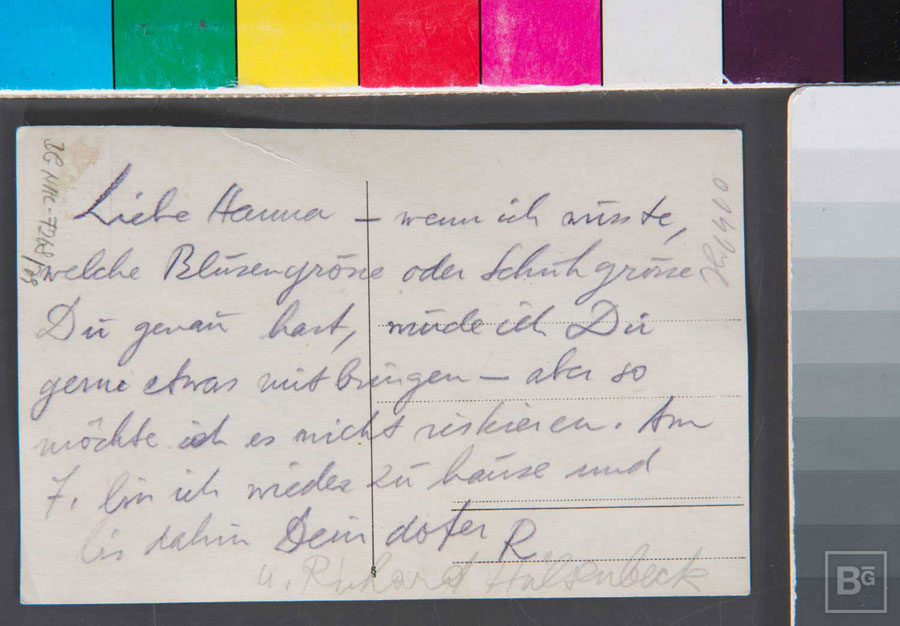 Liebe Hanna – wenn ich wüsste,
welche Blusengrösse oder Schuhgrösse
Du genau hast, würde ich Dir
gerne etwas mitbringen – aber so
möchte ich es nicht riskieren. Am
7. bin ich wieder zu hause und
bis dahin Dein doter R
u. Richard Hülsenbeck
BG NHL-7268/78
BG